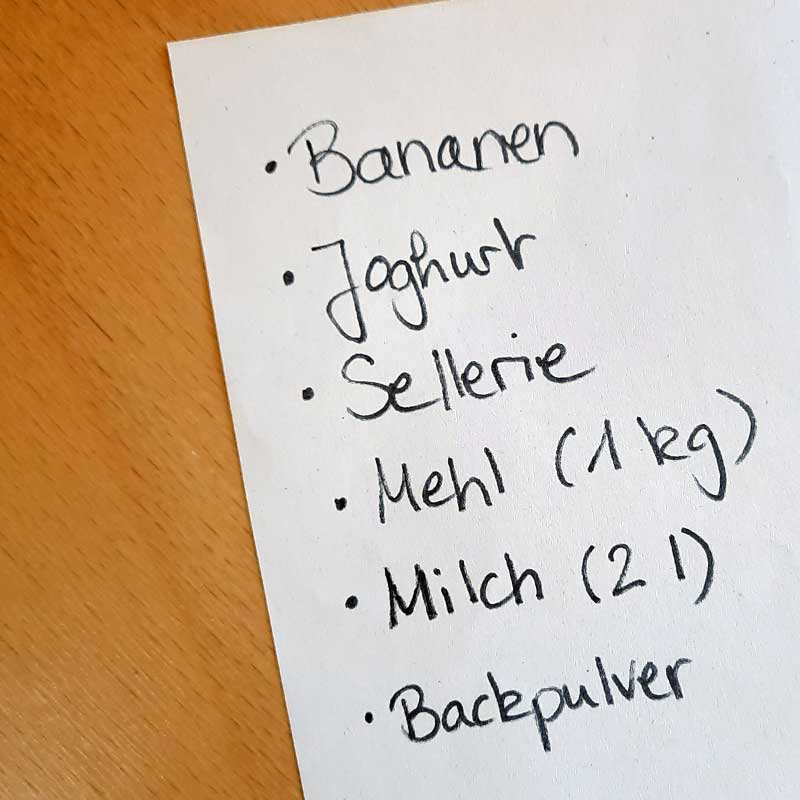 • Bananen
• Joghurt
• Sellerie
• Mehl (1 kg)
• Milch (2 l)
• Backpulver